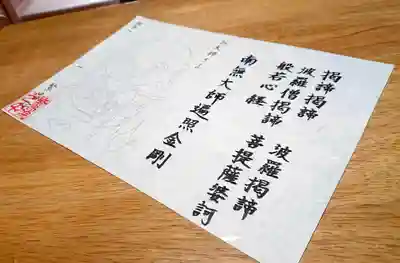 揭諦揭諦 波羅揭諦
波羅僧揭諦 菩提薩婆訶
般若心経
南無大師遍照金剛